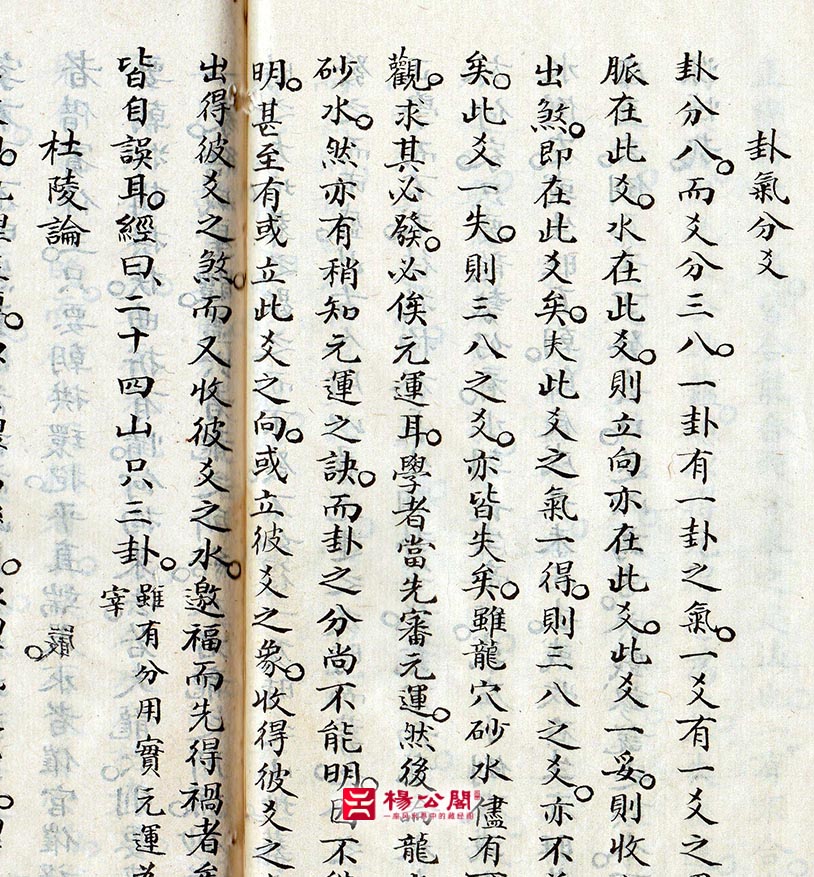 卦氣分爻
卦分八。而爻分三八。一卦有一卦之氣。一爻有一爻之
脈在此爻。水在此爻。則立向亦在此爻。此爻一妥。則收
出煞。即在此爻矣。夫此爻之氣一得。則三八之爻。亦不
矣。此爻一失。則三八之爻。亦皆失矣。雖龍穴砂水儘有
觀。求其必發。必俟元運耳。學者當先審元運。然後 龍
砂水。然亦有稍知元運之訣。而卦之分尚不能明。因不
明。甚至有或立此爻之向。或立彼爻之象。收得彼爻之
出得彼爻之煞。而又收彼爻之水。邀福而先得禍者
皆自誤耳。經曰、二十四山只三卦。雖有分用實元運為
宰
杜陵論
楊公閣